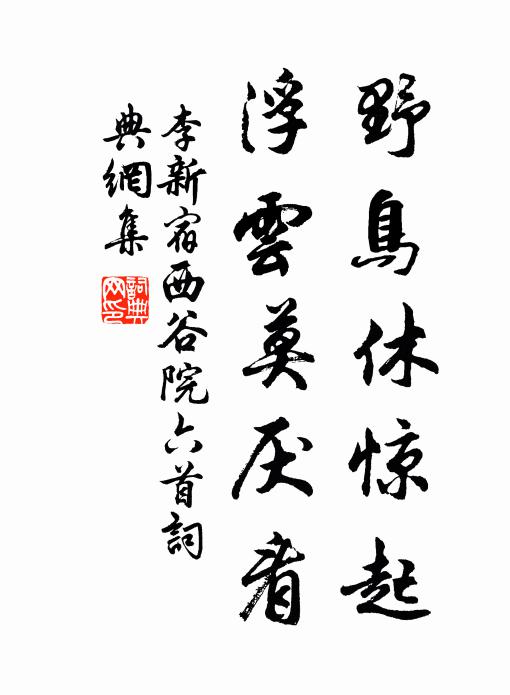 野鳥休惊起
浮雲莫厌看
李新宿西谷院六首詞
典網集
詞典
网印